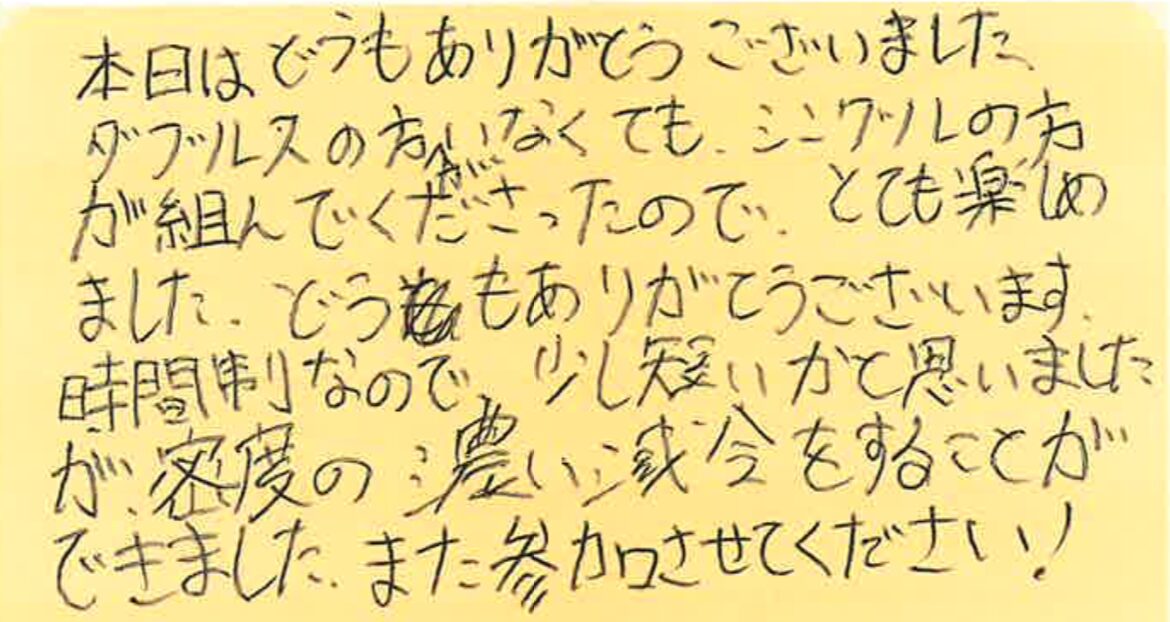 本日はどうもありがとうございました
ダブルスの方がいなくても、シングルの方
が組んでくださったので、とても楽しめ
ました。どうもありがとうございます。
時間制なので、少し短いかと思いました
が、密度の濃い試合をすることが
できました。また参加させてください!